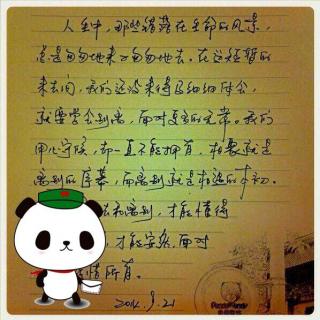 人生中，那些错落在生命的风景，
总是匆匆地来又匆匆地去。在这短暂的
来去间，我们还没来得及细细体会，
就要学会别离，面对更多的无常。我们
用心守候，却一直不能拥有，相聚就是
离别的序幕，而离别就是相逢的本初。
去和离别，才能懂得
，才能安然面对
情所有。
2014.9.21